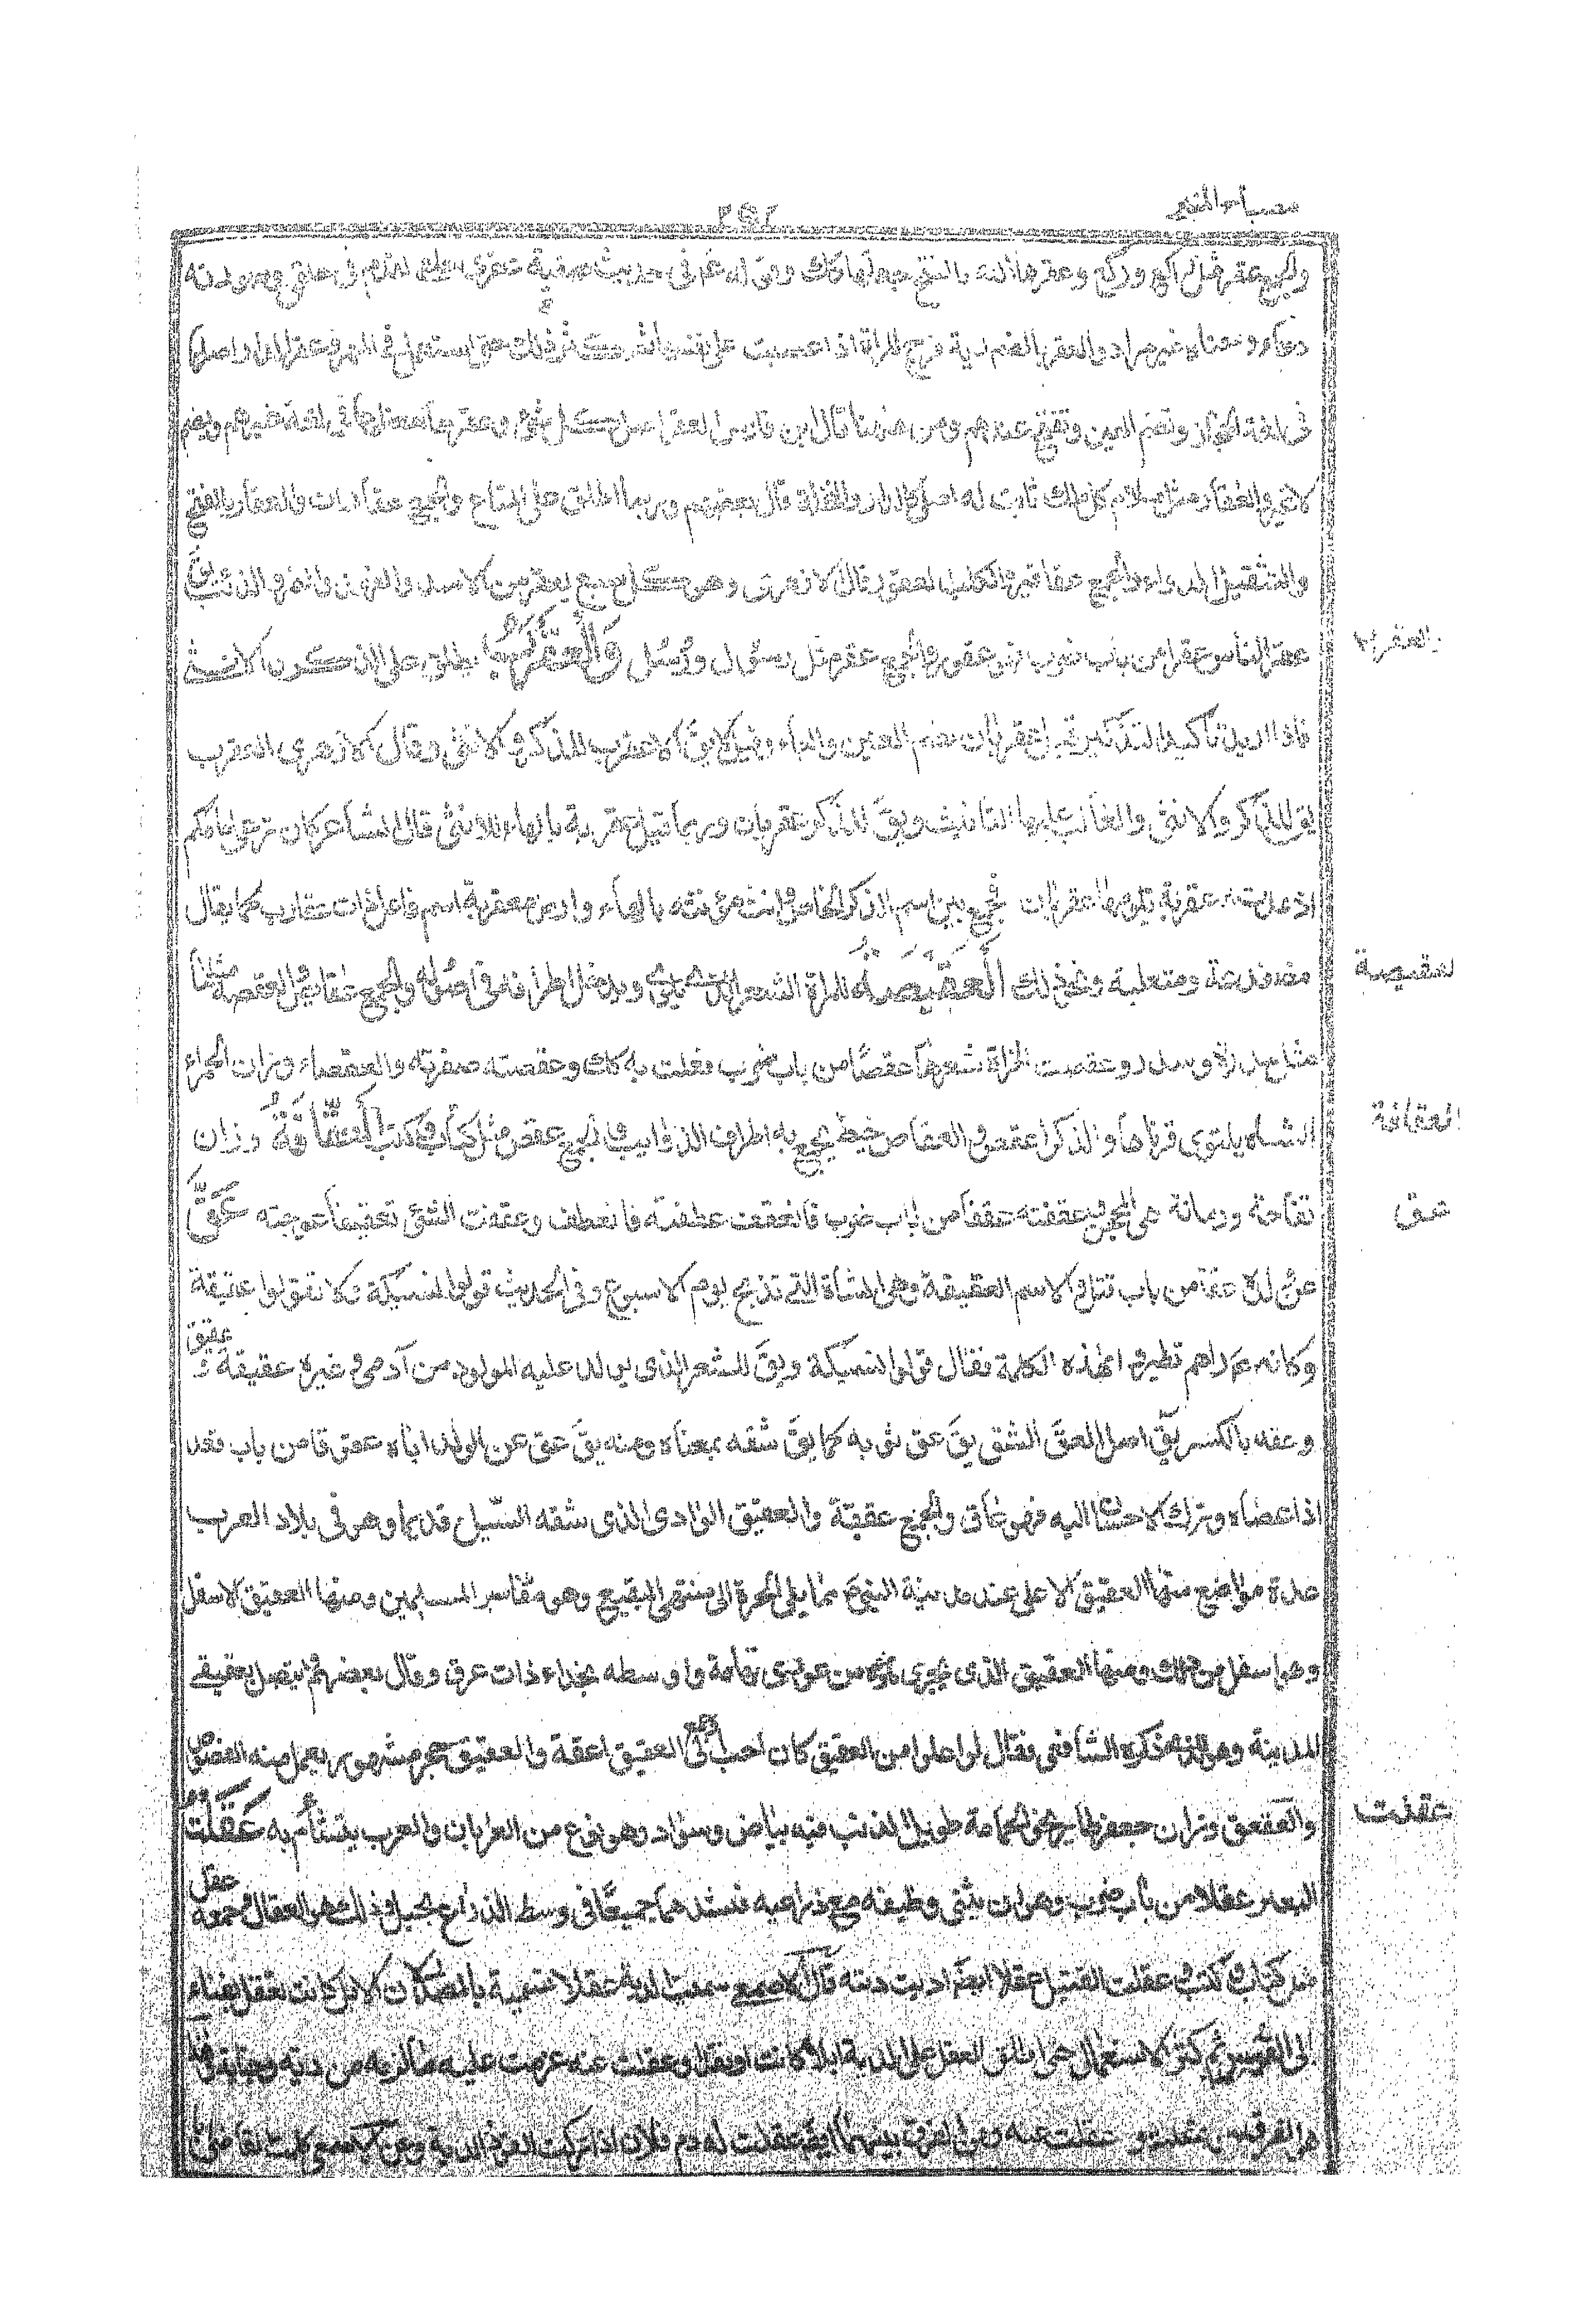 مصباح المنير
والجمع عقر مثل راكع وركع وعقرها الله بالفتح جعلها كك وقوله في حديث صفية عقرى حلقى
دعاء ومعناه غير مراد والعقر بالضم دية فرج المراة اذا غصبت على نفسها ثم كثر ذلك حتى استعمل في المهر وعقر الدار اصلها
في لغة الحجاز وتضم العين وتفتح عندهم ومن هنا قال ابن فارس العقر اصل كل شئ وعقرها معظمها في لغة غيرهم وتضم
لا غير والعقار مثل سلام كل ملك ثابت له اصل كالدار والنخلة قال بعضهم وربما اطلق على المتاع والجمع عقارات والعقار بالفتح
والتثقيل الدواء والجمع عقاقير والكلب العقور قال الازهرى وهو كل سبع يعقر من الاسد والفهد والنمر والذئب يق
العقرب
عقر الناس عقرا من باب ضرب فهو عقور والجمع عقر مثل رسول ورسل والعقرب يطلق على الذكر والانثى
فاذا اريد تاكيد التذكير قيل عقربان بضم العين والراء وقيل لا يق الا عقرب للذكر والانثى وقال الازهرى العقرب
يق للذكر والانثى والغالب عليها التانيث ويق للذكر عقربان وربما قيل عقربة بالهاء للانثى قال الشاعر كان مرعى امكم
اذ غدت عقربة يكومها عقربان فجمع بين اسم الذكر الخاص وانث المؤنثه بالهاء وارض معقربة اسم فاعل ذات عقارب كما يقال
العقيصة
مضفدعة ومثعلبة ونحو ذلك العقيصة للمراة الشعر الذى يلوى ويدخل اطرافه في اصوله والجمع عقايص والعقصة مثلها
مثل سدرة وسدر وعقصت المراة شعرها عقصا من باب ضرب فعلت به كك وعقصته ضفرته والعقصاء وزان الحمراء
العقافة
الشاه يلتوى قرناها والذكر اعقص والعقاص خيط يجمع به اطراف الذوايب والجمع عقص مثل كتاب وكتب العقافة وزان
عق
تفاحة ورمانة هى المحجن وعقفته عقفا من باب ضرب فانعقف عطفته فانعطف وعقفت الشئ تعقيفا عوجته عق
عن ولده عقا من باب قتل والاسم العقيقة وهى الشاة التى تذبح يوم الاسبوع وفى الحديث قولوا نسيكة ولا تقولوا عقيقة
وكانه ع راهم تطيروا بهذه الكلمة فقال قولوا نسيكة ويق للشعر الذى يولد عليه المولود من آدمى وغيره عقيقة و عقيق
وعقه بالكسر يق اصل العق الشق يق عق ثوبه كما يق شقه بمعناه ومنه يق عق عن الولد اباه عقوقا من باب قعد
اذا عصاه وترك الاحسان اليه فهو عاق والجمع عققة والعقيق الوادى الذى شقه السيل قديما وهو فى بلاد العرب
عدة مواضع منها العقيق الاعلى عند مدينة النبى ع مما يلى الحرة الى منتهى البقيع وهو مقابر المسلمين ومنها العقيق الاسفل
وهو اسفل من ذلك ومنها العقيق الذى يجرى ماؤه من غورى تهامة واوسطه بحذاء ذات عرق وقال بعضهم يتصل بعقيقى
المدينة وهو الذى ذكره الشافعى فقال لو اهلوا من العقيق كان احب الى العقيق اعقة والعقيق حجر مشهور يعمل منه الفصوص
عقلت
والعقعق وزان جعفر طاير نحو الحمامة طويل الذنب فيه بياض وسواد وهو نوع من الغربان والعرب يتشأم به عقلت
البعير عقلا من باب ضرب وهو ان يثنى وظيفه مع ذراعيه فتشدهما جميعا فى وسط الذراع بحبل وذلك هو العقال وجمعه عقل
مثل كتاب وكتب وعقلت القتيل عقلا ايضا اديت ديته قال الاصمعى سميت الدية عقلا تسمية بالمصدر لان الابل كانت تعقل بفناء
ولى القتيل ثم كثر الاستعمال حتى اطلق العقل على الدية ابلا كانت او نقدا وعقلت عنه غرمت عليه ما لزمه من دية وجناية وهذا
هو الفرق بين عقلته وعقلت عنه ومن الفرق بينهما ايضا عقلت له دم فلان اذا تركت القود للدية وعن الاصمعى كلمت القاضى